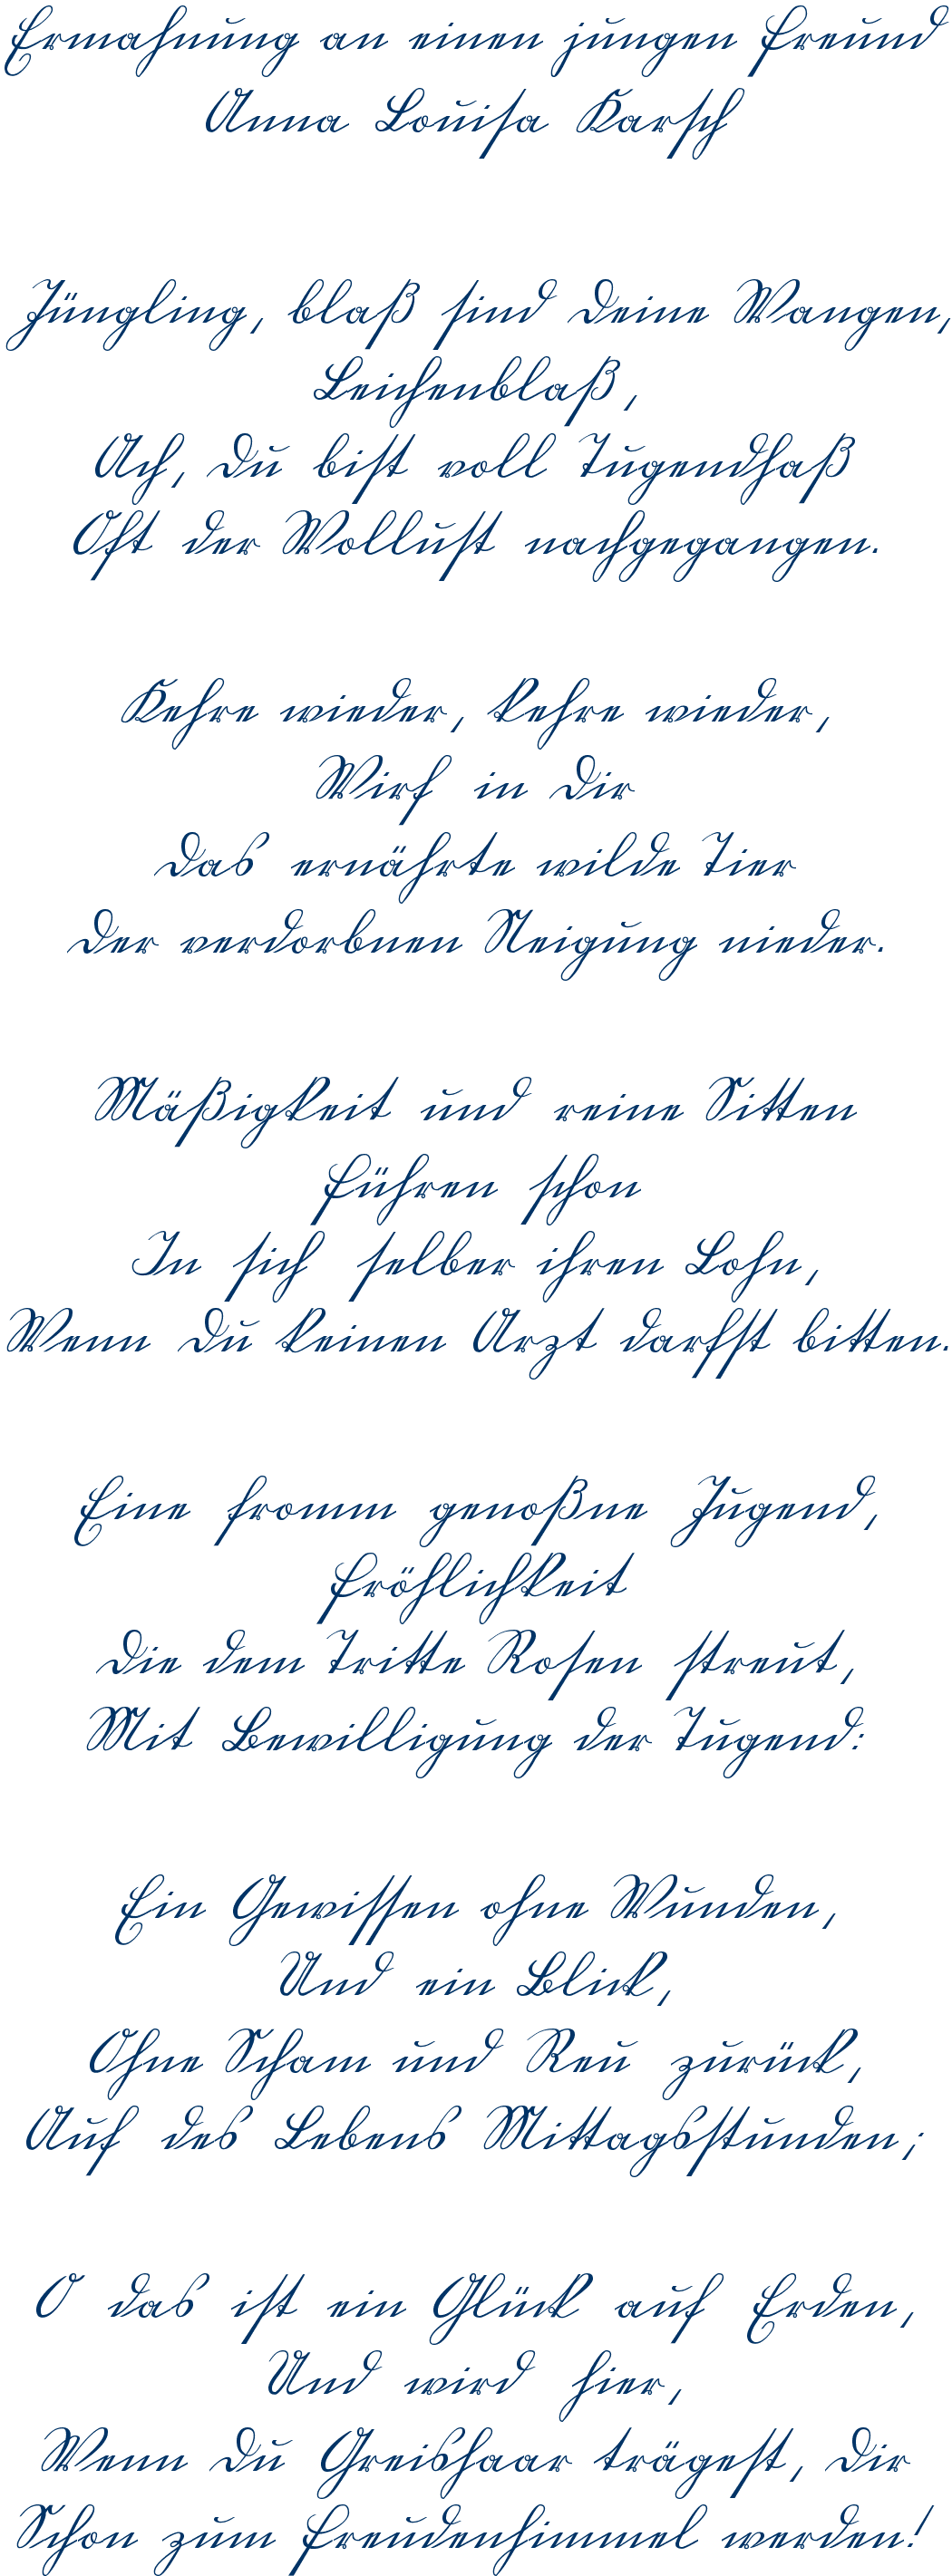 Ermahnung an einen jungen Freund
Anna Louisa Karsch
Jüngling, blaß sind Deine Wangen,
Leichenblaß,
Ach, Du bist voll Tugendhaß
Oft der Wollust nachgegangen.
Kehre wieder, kehre wieder,
Wirf in Dir
Das ernährte wilde Tier
Der verdorbnen Neigung nieder.
Mäßigkeit und reine Sitten
Führen schon
In sich selber ihren Lohn,
Wenn Du keinen Arzt darfst bitten.
Eine fromm genoßne Jugend,
Fröhlichkeit
Die dem Tritte Rosen streut,
Mit Bewilligung der Tugend:
Ein Gewissen ohne Wunden,
Und ein Blick,
Ohne Scham und Reu zurück,
Auf des Lebens Mittagsstunden;
O das ist ein Glück auf Erden,
Und wird hier,
Wenn Du Greishaar trägest, Dir
Schon zum Freudenhimmel werden!